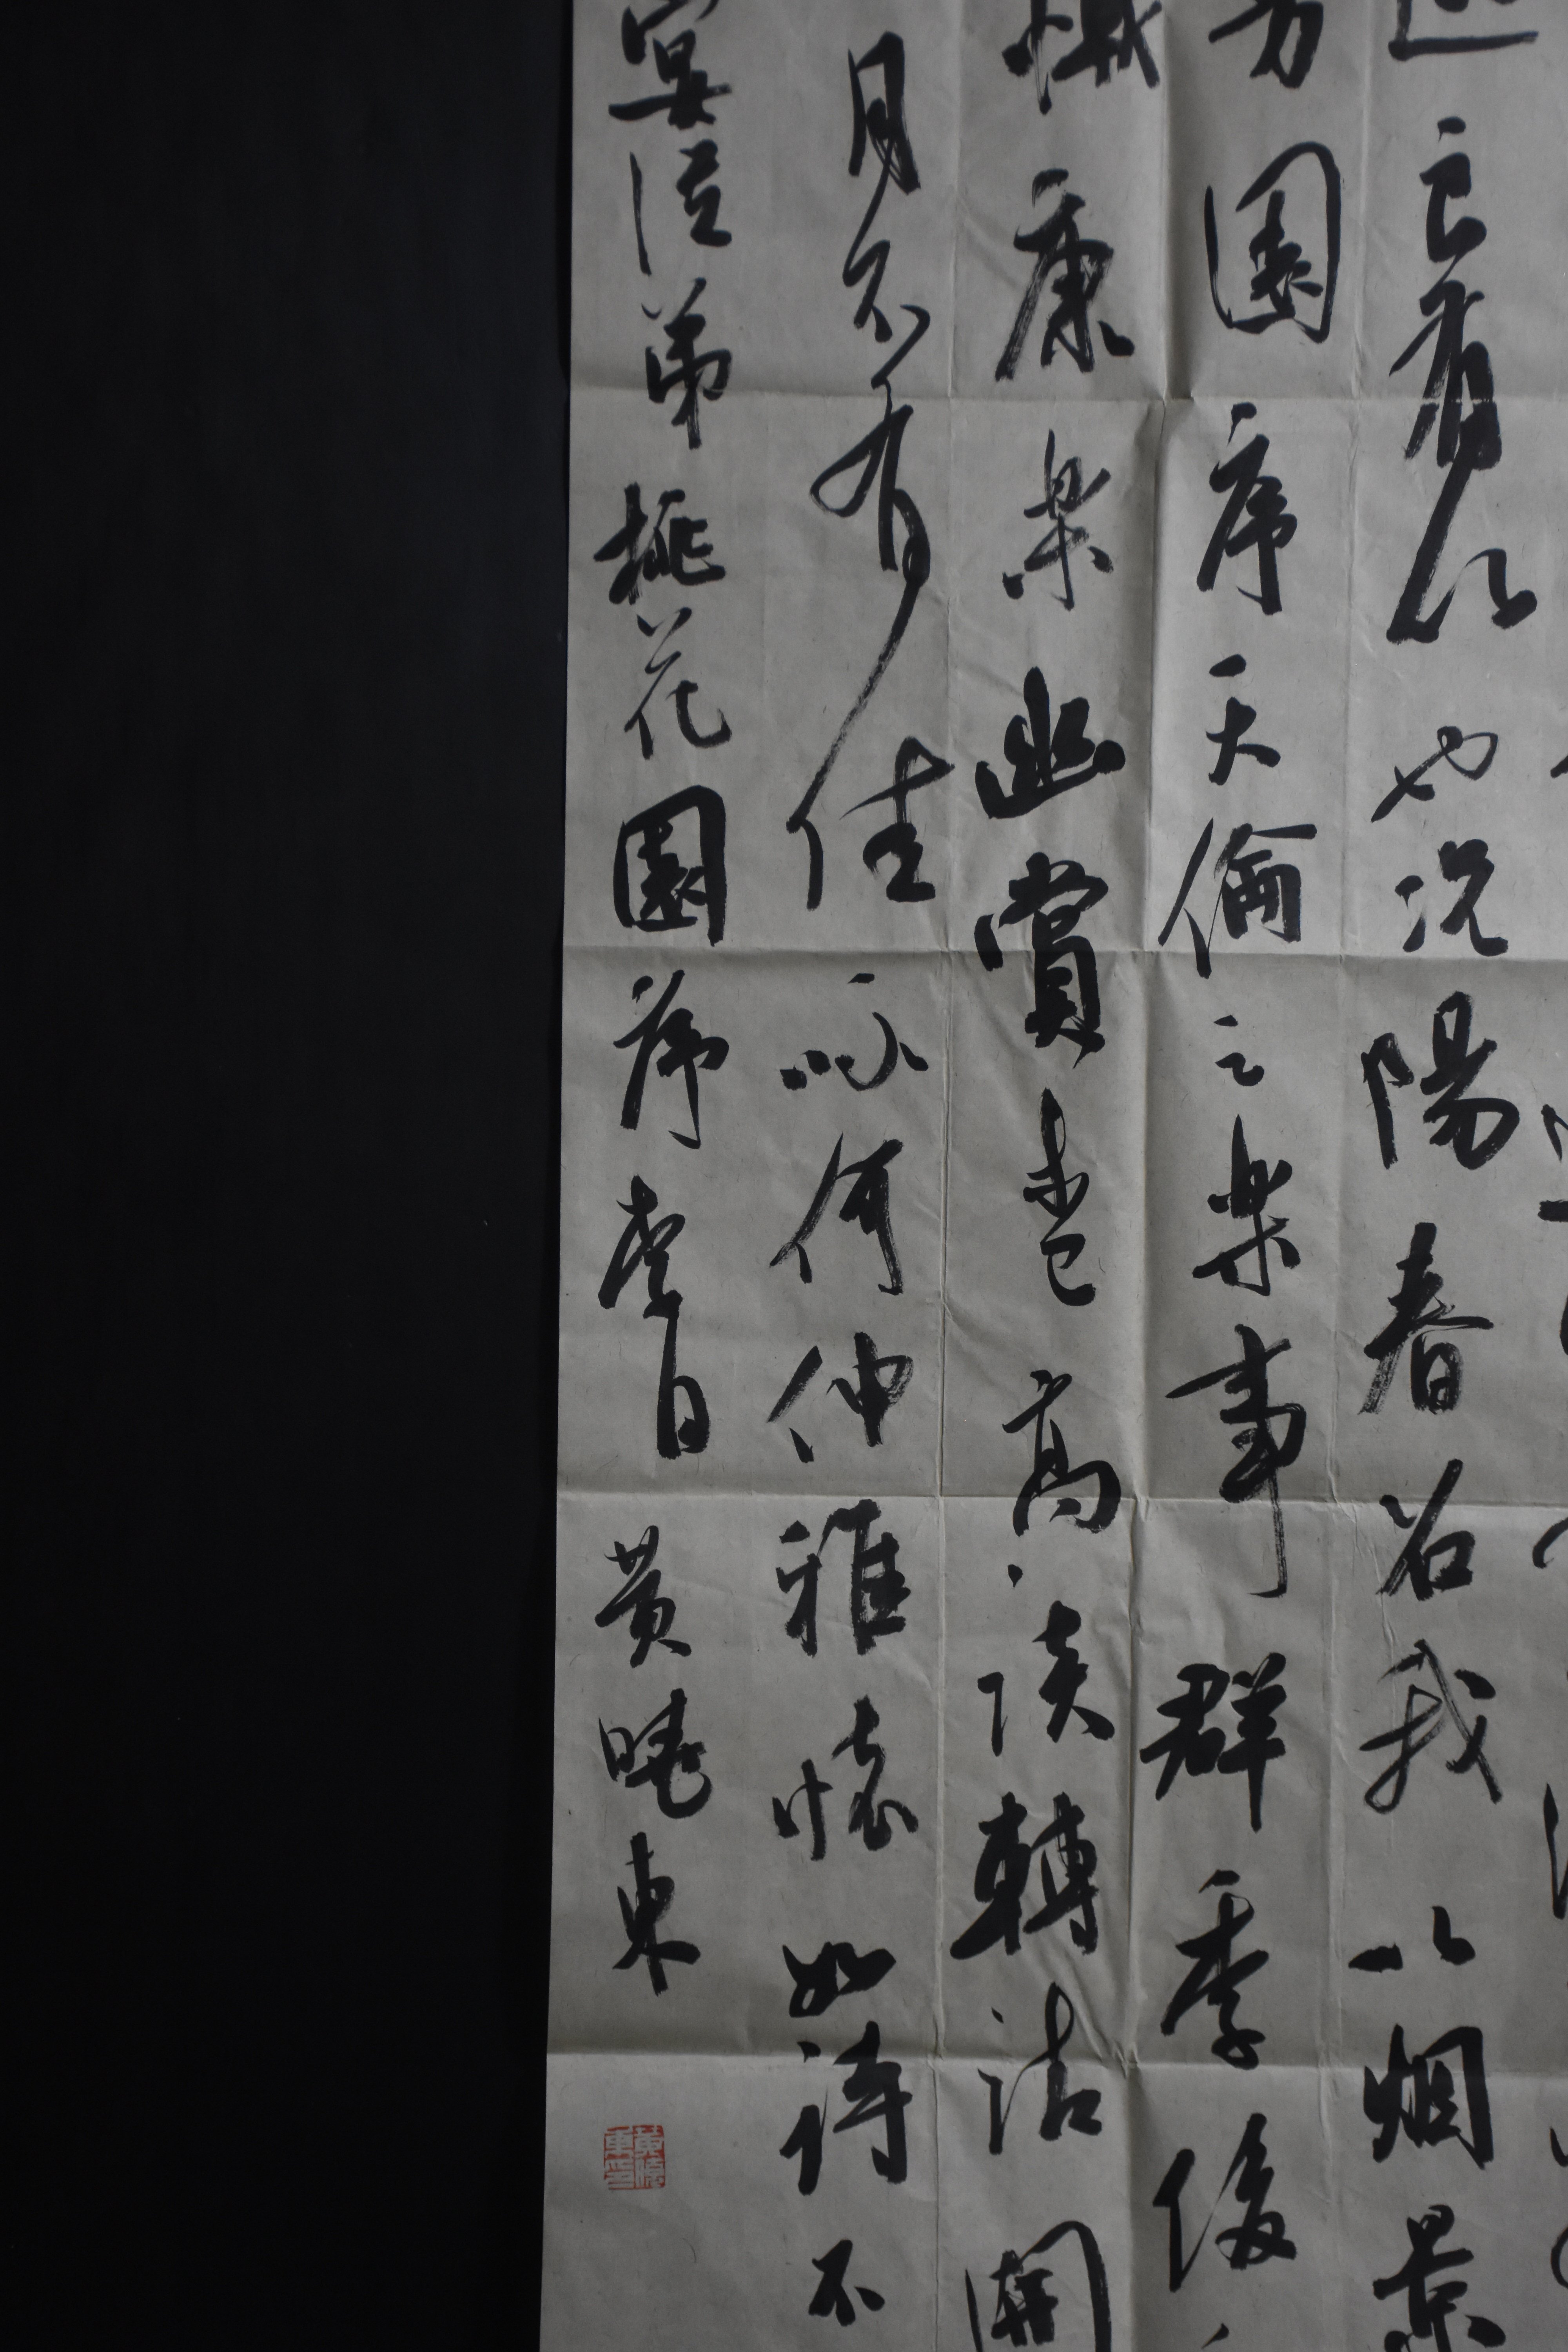 良有以也况陽春召我以烟景
園序天倫之樂事群季俊
慚康樂幽賞未已高談轉清開
月不有佳詠何伸雅懷如詩不
宴從弟桃花園序李白黄曉東
黄曉東印